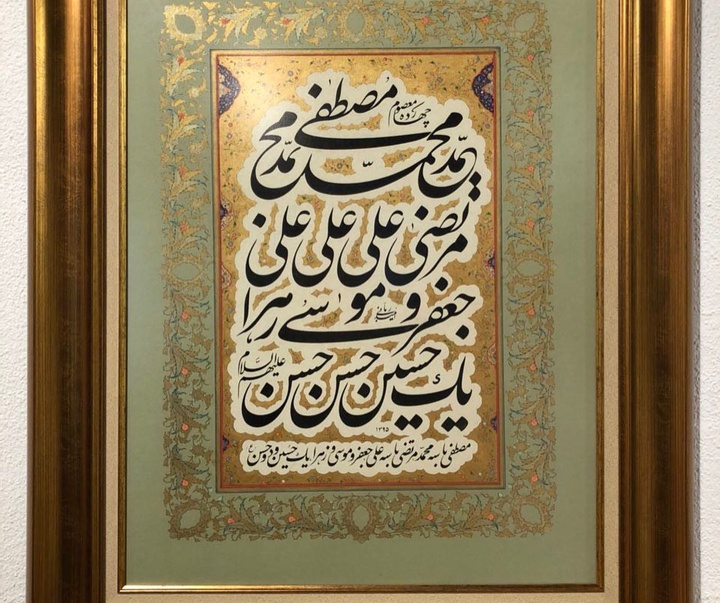 چهارده معصوم
مصطفی
محمد محمد محمد
مرتضی علی علی علی
جعفر و موسی زهرا
یک حسین حسن حسن علیهم السلام
۱۳۹۵
مصطفی با سه محمد مرتضی با سه علی جعفر و موسی و زهرا یک حسین و دو حسن